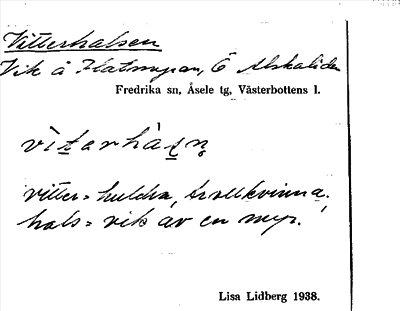 Vitterhalsen
Vik å Flatmyran, Ö Alskaliden
Fredrika sn, Åsele tg, Västerbottens l.
vìtarhàsn̥
vitter = huldra, trollkvinna.
hals = vik av en myr.
Lisa Lidberg 1938.